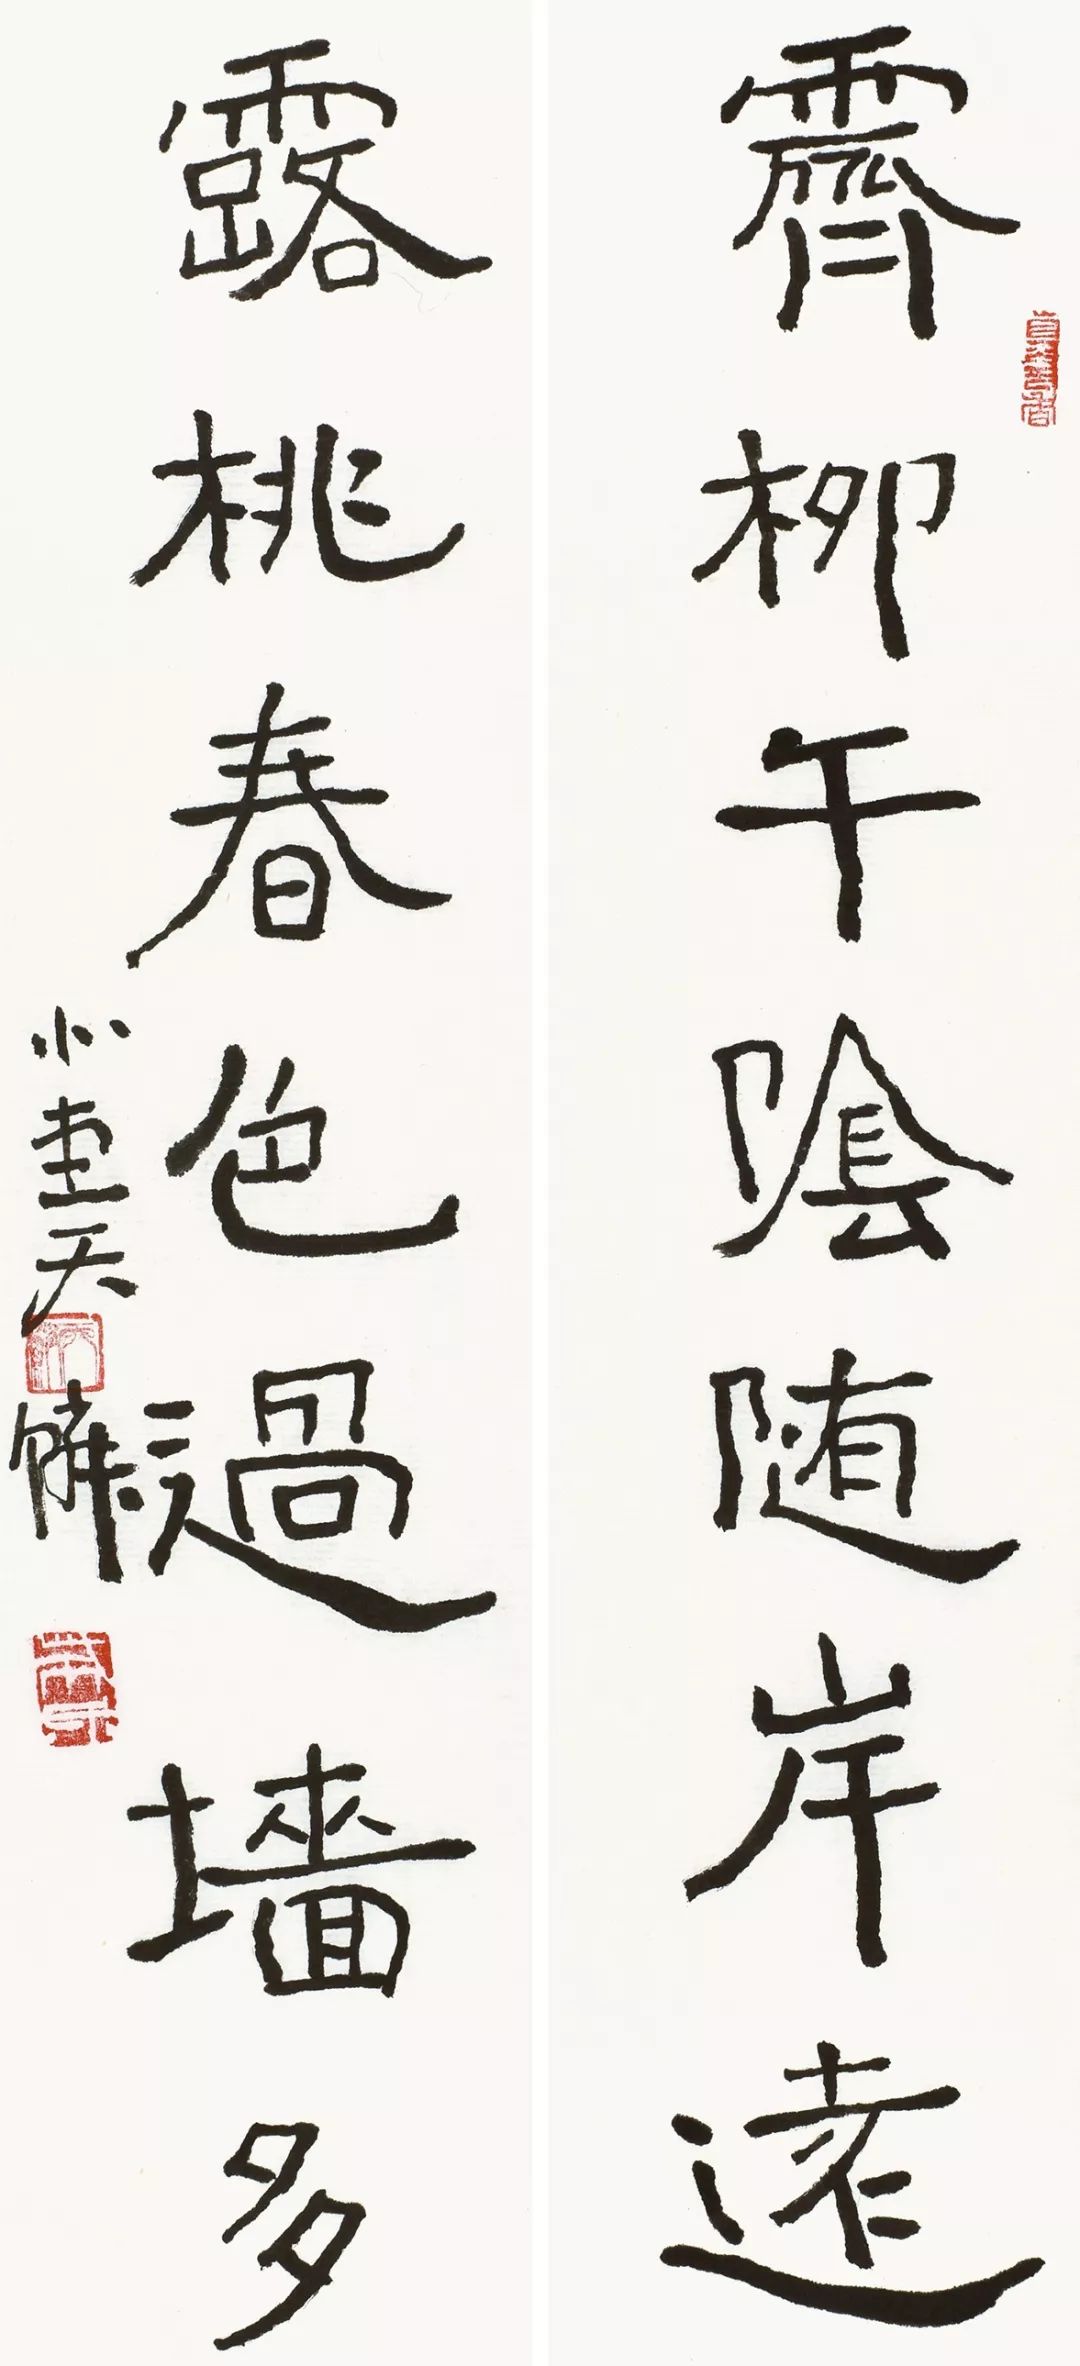 霽柳午陰随岸遠
露桃春色過墻多
小堂天